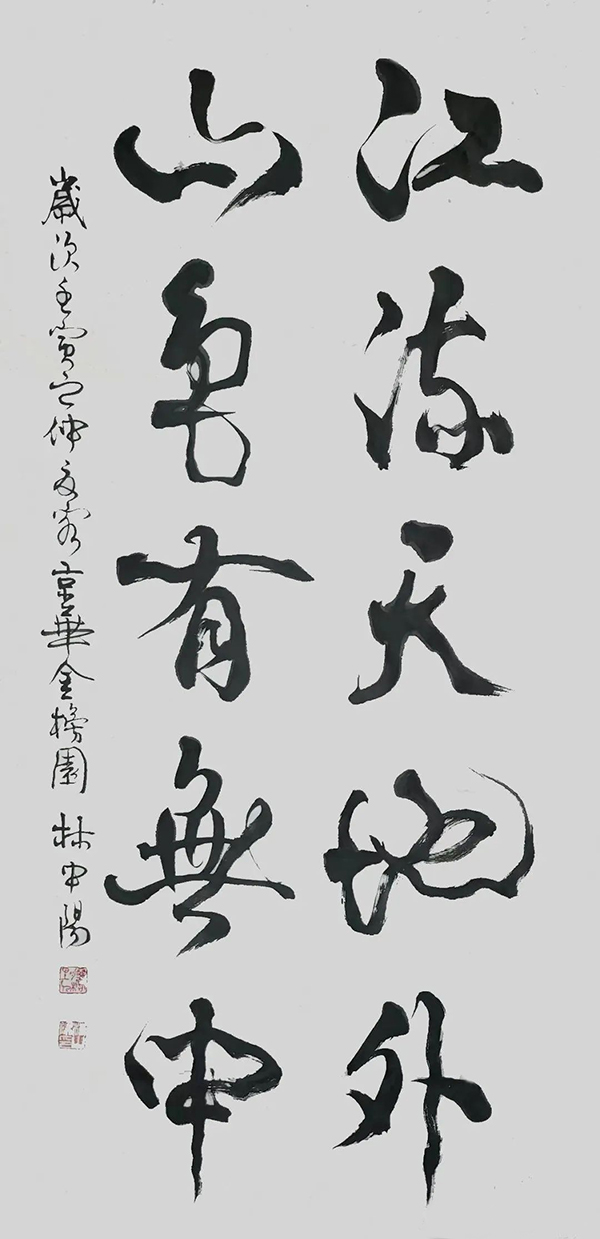 江流天地外
山色有無中
歲次壬寅之仲夏客京華金榜園 林中陽